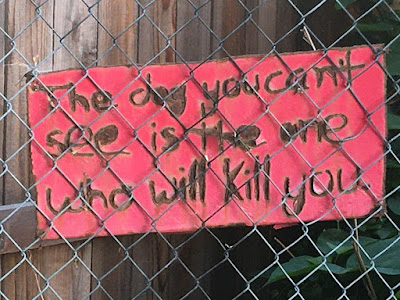 The dog you can't
see is the one
who will kill you